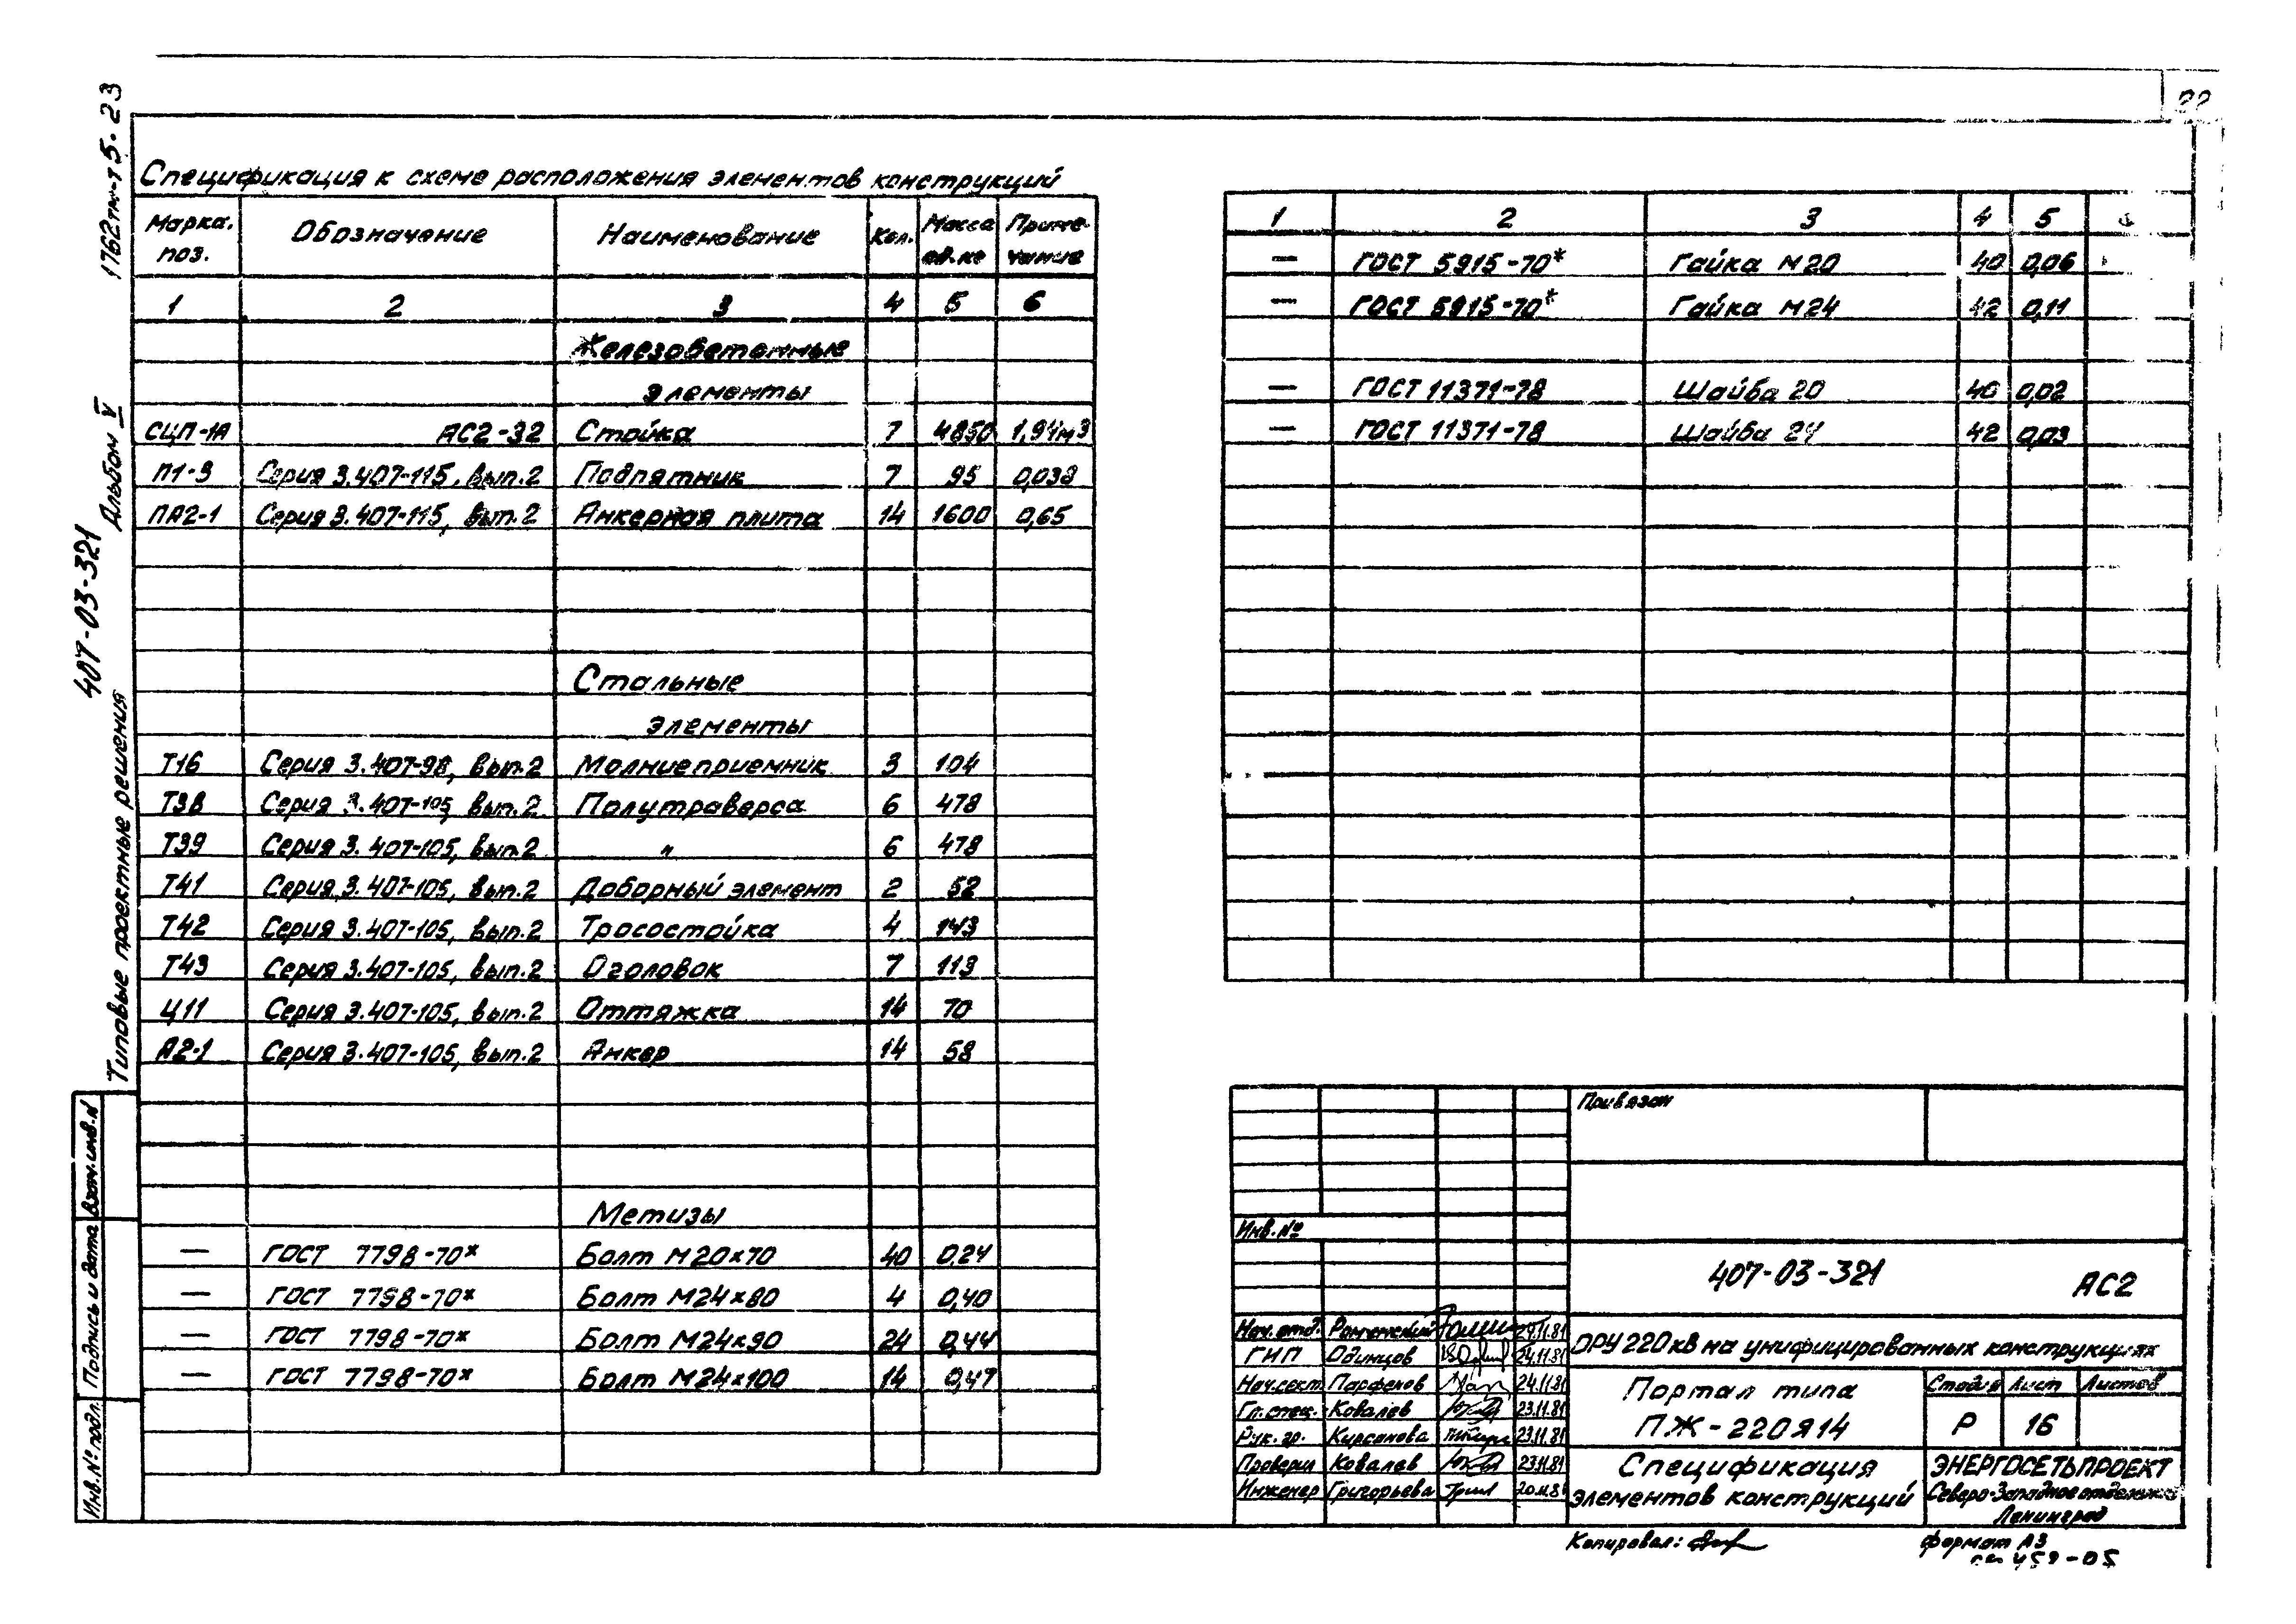 22
1762тм-т5. 23
Альбом V
407-03-321
Типовые проектные решения
Взам.инв.N
Подпись и дата
Инв.№ подл.
Спецификация к схеме расположения элементов конструкций
Марка. поз. Обозначение Наименование Кол. Масса ед.кг Примечание
1 2 3 4 5 6
Железобетонные
элементы
СЦП-1А АС2-32 Стойка 7 4850 1,94м3
П1-3 Серия 3.407-115, вып.2 Подпятник 7 95 0,038
ПА2-1 Серия 3.407-115, вып.2 Анкерная плита 14 1600 0,65
Стальные
элементы
Т16 Серия 3.407-98, вып.2 Молниеприемник 3 104
Т38 Серия 3.407-105, вып.2 Полутраверса 6 478
Т39 Серия 3.407-105, вып.2 " 6 478
Т41 Серия 3.407-105, вып.2 Доборный элемент 2 52
Т42 Серия 3.407-105, вып.2 Тросостойка 4 143
Т43 Серия 3.407-105, вып.2 Оголовок 7 113
Ц11 Серия 3.407-105, вып.2 Оттяжка 14 70
А2-1 Серия 3.407-105, вып.2 Анкер 14 58
Метизы
— ГОСТ 7798-70* Болт М20×70 40 0,24
— ГОСТ 7798-70* Болт М24×80 4 0,40
— ГОСТ 7798-70* Болт М24×90 24 0,44
— ГОСТ 7798-70* Болт М24×100 14 0,47
1 2 3 4 5
— ГОСТ 5915-70* Гайка М20 40 0,06
— ГОСТ 5915-70* Гайка М24 42 0,11
— ГОСТ 11371-78 Шайба 20 40 0,02
— ГОСТ 11371-78 Шайба 24 42 0,03
Привязан
Инв.№
407-03-321 АС2
Нач.отд. Роменский 24.11.81
ГИП Одинцов 24.11.81
Нач.сект. Парфенов 24.11.81
Гл.спец. Ковалев 23.11.81
Рук.гр. Кирсанова 23.11.81
Проверил Ковалев 23.11.81
Инженер Григорьева 20.11.81
ОРУ 220 кВ на унифицированных конструкциях
Портал типа
ПЖ-220Я14
Стадия Лист Листов
Р 16
Спецификация
элементов конструкций
ЭНЕРГОСЕТЬПРОЕКТ
Северо-Западное отделение
Ленинград
Копировал:
Формат А3
459-05